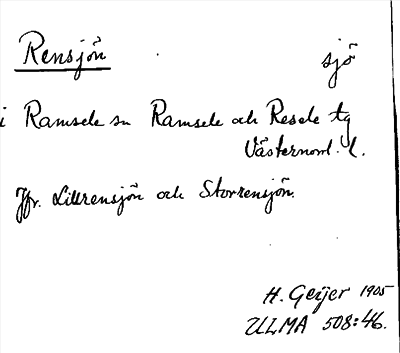 Rensjön sjö
i Ramsele sn Ramsele och Resele tg
Västernorrl. l.
Jfr. Lillrensjön och Storrensjön.
H. Geijer 1905
ULMA 508:46.